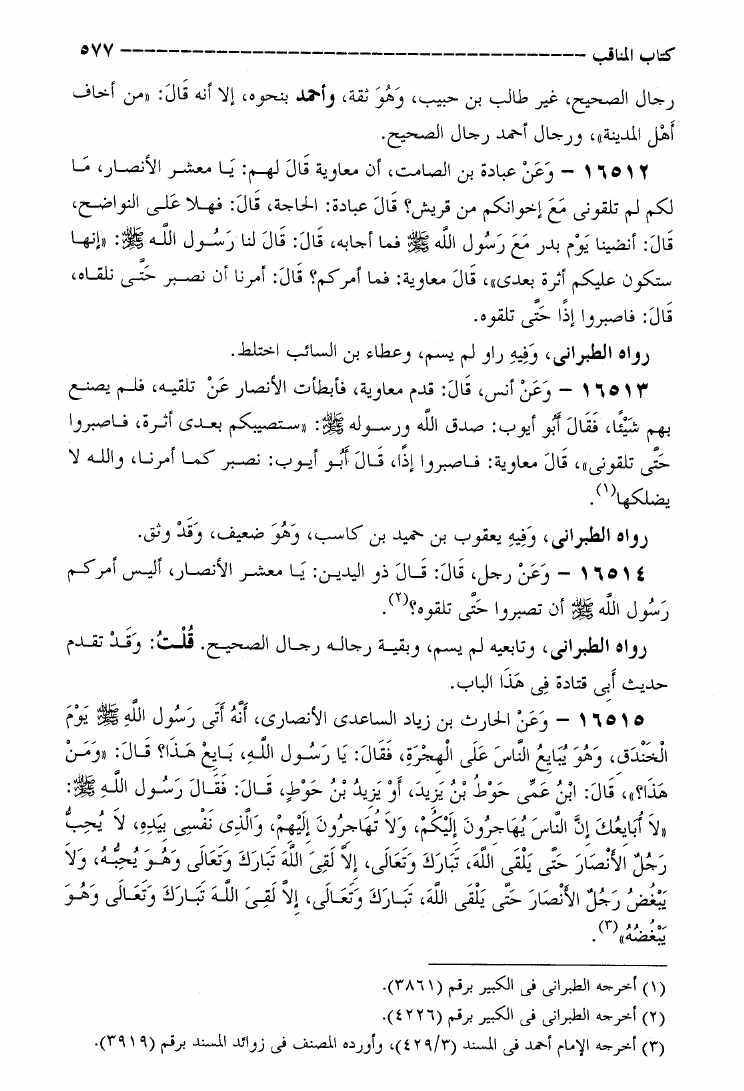 كتاب المناقب ------------------------------------------ ٥٧٧
رجال الصحيح، غير طالب بن حبيب، وَهُوَ ثقة، وأحمد بنحوه، إلا أنه قَالَ: «من أخاف
أَهْل المدينة»، ورجال أحمد رجال الصحيح.
١٦٥١٢ – وَعَنْ عبادة بن الصامت، أن معاوية قَالَ لهم: يَا معشر الأنصار، مَا
لكم لم تلقونى مَعَ إخوانكم من قريش؟ قَالَ عبادة: الحاجة، قَالَ: فهلا عَلى النواضح،
قَالَ: أنضينا يَوْم بدر مَعَ رَسُول اللَّه ﷺ فما أجابه، قَالَ: قَالَ لنا رَسُول اللَّه ﷺ: «إنها
ستكون عليكم أثرة بعدى»، قَالَ معاوية: فما أمركم؟ قَالَ: أمرنا أن نصبر حَتَّى نلقاه،
قَالَ: فاصبروا إذًا حَتَّى تلقوه.
رواه الطبرانى، وَفِيهِ راو لم يسم، وعطاء بن السائب اختلط.
١٦٥١٣ – وَعَنْ أنس، قَالَ: قدم معاوية، فأبطأت الأنصار عَنْ تلقيه، فلم يصنع
بهم شَيْئًا، فَقَالَ أَبُو أيوب: صدق اللَّه ورسوله ﷺ: «ستصيبكم بعدى أثرة، فاصبروا
حَتَّى تلقونى»، قَالَ معاوية: فاصبروا إذًا، قَالَ أَبُو أيوب: نصبر كما أمرنا، واللـه لا
يضلكها(١).
رواه الطبرانى، وَفِيهِ يعقوب بن حميد بن كاسب، وَهُوَ ضعيف، وَقَدْ وثق.
١٦٥١٤ – وَعَنْ رجل، قَالَ: قَالَ ذو اليدين: يَا معشر الأنصار، أليس أمركم
رَسُول اللَّه ﷺ أن تصبروا حَتَّى تلقوه؟(٢).
رواه الطبرانى، وتابعيه لم يسم، وبقية رجاله رجال الصحيح. قُلْتُ: وَقَدْ تقدم
حديث أَبى قتادة فِى هَذَا الباب.
١٦٥١٥ – وَعَنْ الحارث بن زياد الساعدى الأنصارى، أَنَّهُ أَتَى رَسُول اللَّهِ ﷺ يَوْمَ
الْخَنْدَق، وَهُوَ يُبَايِعُ النَّاسَ عَلَى الْهِجْرَةِ، فَقَالَ: يَا رَسُول اللَّهِ، بَايِعْ هَذَا؟ قَالَ: «وَمَنْ
هَذَا؟»، قَالَ: ابْنُ عَمِّى حَوْطُ بْنُ يَزِيدَ، أَوْ يَزِيدُ بْنُ حَوْطٍ، قَالَ: فَقَالَ رَسُول اللَّهِ ﷺ:
«لاَ أُبَايِعُكَ إِنَّ النَّاسَ يُهَاجِرُونَ إِلَيْكُمْ، وَلاَ تُهَاجِرُونَ إِلَيْهِمْ، وَالَّذِى نَفْسِى بِيَدِهِ، لاَ يُحِبُّ
رَجُلٌ الأَنْصَارَ حَتَّى يَلْقَى اللَّهَ، تَبَارَكَ وَتَعَالَى، إِلاَّ لَقِىَ اللَّهَ تَبَارَكَ وَتَعَالَى وَهُوَ يُحِبُّهُ، وَلاَ
يَبْغُضُ رَجُلٌ الأَنْصَارَ حَتَّى يَلْقَى اللَّهَ، تَبَارَكَ وَتَعَالَى، إِلاَّ لَقِىَ اللَّهَ تَبَارَكَ وَتَعَالَى وَهُوَ
يَبْغُضُهُ»(٣).
(١) أخرجه الطبرانى فى الكبير برقم (٣٨٦١).
(٢) أخرجه الطبرانى فى الكبير برقم (٤٢٢٦).
(٣) أخرجه الإمام أحمد فى المسند (٤٢٩/٣)، وأورده المصنف فى زوائد المسند برقم (٣٩١٩).